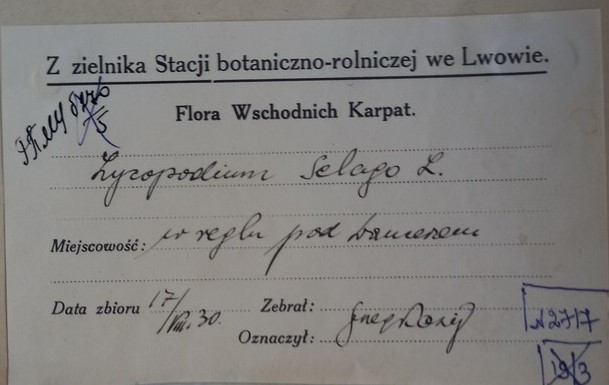 Z zielnika Stacji botaniczno-rolniczej we Lwowie.
Flora Wschodnich Karpat.
Lycopodium Selago L.
Miejscowość: w reglu pod
Data zbioru 17/VIII. 30. Zebrał:
Oznaczył:
N2717
193